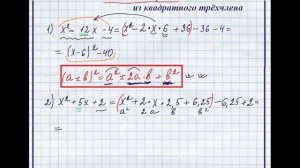 из квадратного трёхчлена
1) x² - 12x - 4 = (x² - 2·x·6 + 36) - 36 - 4 =
= (x-6)² - 40
(a ± b)² = a² ± 2a·b + b²
2) x² + 5x + 2 = (x² + 2·x·2,5 + 6,25) - 6,25 + 2 =
a² 2 a b b²
=